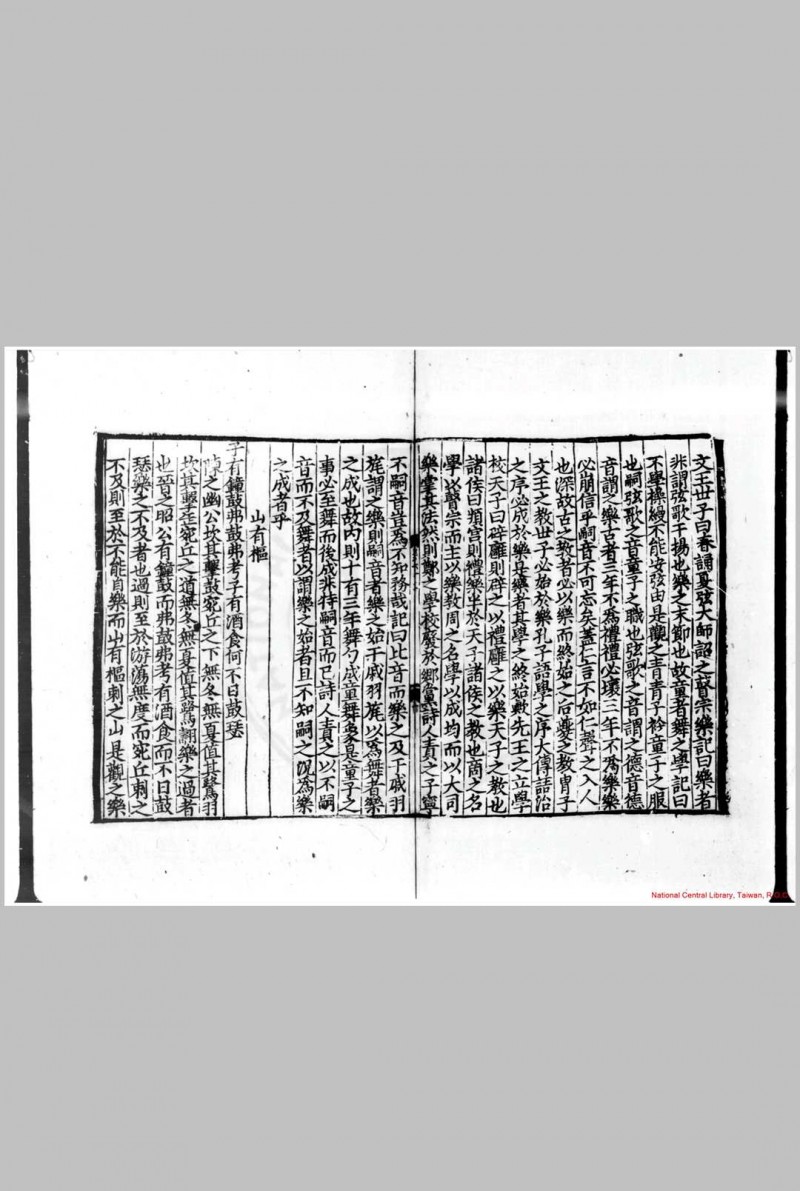 文王世子曰春誦夏弦大師詔之瞽宗樂記曰樂者
非謂弦歌干揚也樂之末節也故童者舞之學記曰
不學操縵不能安弦由是觀之青青子衿童子之服
也嗣弦歌之音童子之職也弦歌之音謂之德音德
音謂之樂古者三年不為禮禮必壞三年不為樂樂
必崩信乎嗣音不可忘矣蓋仁言不如仁聲之入人
也深故古之教者必以樂而終始之后夔之教胄子
文王之教世子必始於樂孔子語學之序大傳語治
之序必成於樂是樂者其學之終始歟先王之立學
校天子曰辟廱則辟之以禮廱之以樂天子之教也
諸侯曰頖宮則禮樂半於天子諸侯之教也商之名
學以瞽宗而主以樂教周之名學以成均而以大司
樂掌其法然則鄭之學校廢於鄉黨詩人責之子寧
不嗣音豈為不知務哉記曰比音而樂之及干戚羽
旄謂之樂則嗣音者樂之始干戚羽旄以為舞者樂
之成也故內則十有三年舞勺成童舞象是童子之
事必至舞而後成非特嗣音而已詩人責之以不嗣
音而不及舞者以謂樂之始者且不知嗣之況為樂
之成者乎
山有樞
子有鐘鼓弗鼓弗考子有酒食何不日鼓瑟
陳之幽公坎其擊鼓宛丘之下無冬無夏值其鷺羽
坎其擊缶宛丘之道無冬無夏值其鷺翿樂之過者
也晉之昭公有鐘鼓而弗鼓弗考有酒食而不日鼓
瑟樂之不及者也過則至於游蕩無度而宛丘刺之
不及則至於不能自樂而山有樞刺之由是觀之樂
National Central Library, Taiwan, R.O.C.